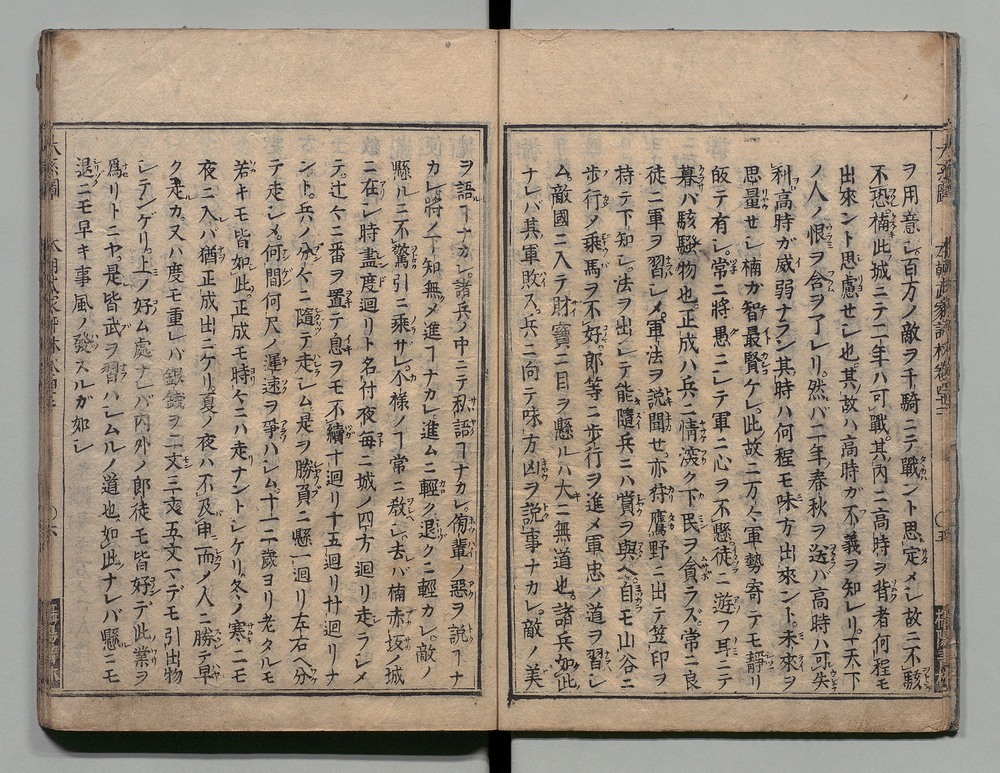 ヲ用意シ。百万ノ敵ヲ千騎ニテ戰ント思定メシ故ニ不駭
不恐楠此城ニテ二年ハ可戰。其内ニ高時ヲ背者何程モ
出來ント思慮せシ也。其故ハ高時が不義ヲ知レリ。天下
ノ人ノ恨ヲ含ヲ了レリ。然バ二年春秋ヲ送バ高時ハ可失
利高時が威弱ナラン其時ハ何程モ味方出來ント。未來ヲ
思量せシ楠が智最賢ケレ。此故ニ万々軍勢寄テモ靜リ
皈テ有シ。常ニ將愚ニシテ軍ニ心ヲ不懸徒ニ遊フ耳ニテ
暮バ駭騷物也。正成ハ兵ニ情深ク下民ヲ貪ラズ。常ニ良
徒ニ軍ヲ習シメ。軍法ヲ説聞せ。亦狩鷹野ニ出テ笠印ヲ
持テ下知シ。法ヲ出シテ能隨兵ニハ賞ヲ與ヘ自モ山谷ニ
歩行ノ乘馬ヲ不好郎等ニ歩行ヲ進メ軍忠ノ道ヲ習シ
ム。敵國ニ入テ財寶ニ目ヲ懸ルハ大ニ無道也。諸兵如此
ナレバ其軍敗ス。兵ニ向テ味方凶ヲ説事ナカレ。敵ノ美
ヲ語ヿナカレ。諸兵ノ中ニテ私語ヿナカレ。傍輩ノ惡ヲ説ヿナ
カレ。將ノ下知無メ進ヿナカレ。進ムニ輕ク退クニ輕カレ。敵ノ
懸ルニ不驚引ニ乘サレ。不様ノヿ常ニ敎シ。去バ楠赤坂ノ城
ニ在シ時盡度廻リト名付夜毎ニ城ノ四方廻リ走ラシメ
テ。辻々ニ番ヲ置テ息ヲモ不續十廻リ十五廻リ廿廻リナ
ント。兵ノ分々ニ隨テ走シム是ヲ勝負ニ懸一廻リ左右ヘ分
テ走シメ。何間何尺ノ遲速ヲ爭ハシム。十一二歳ヨリ老タルモ
若キモ皆如此。正成モ時々ニハ走ナントシケリ。冬ノ寒ニモ
夜ニ入バ猶正成出ニケリ。夏ノ夜ハ不及申而ノ人ニ勝テ早
ク走カ。又ハ度モ重レバ銀錢ヲ二文三文五文マデモ引出物
シテンゲリ。上ノ好ム處ナレバ内外ノ郎徒モ皆好デ此業ヲ
爲リトニヤ。是皆武ヲ習ハシムルノ道也。如此ナレバ懸ニモ
退ニモ早キ事風ノ發スルガ如シ